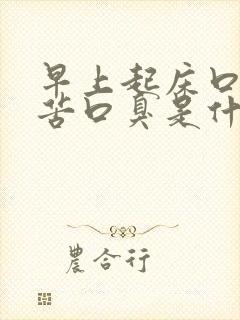 早上起床口
苦口臭是什
農合行